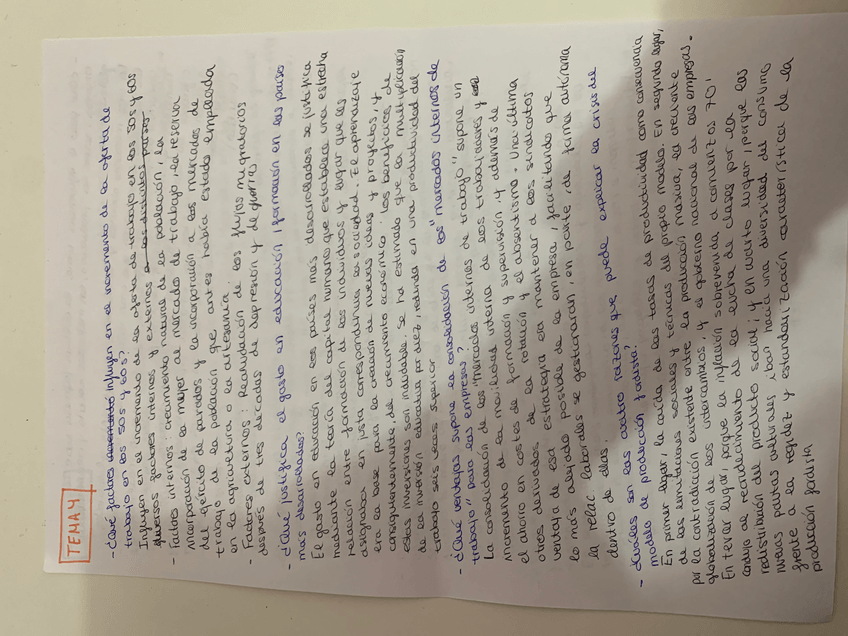 TEMA 4
- ¿Qué factores incremento influyen en el incremento de la oferta de
trabajo en los 50s y 60s?
Influyen en el incremento de la oferta de trabajo en los 50s y 60s
diversos factores internos y externos a los distintos países.
- Factores internos: crecimiento natural de la población, la
incorporación de la mujer al mercado de trabajo, la reserva
del ejército de parados y la incorporación a los mercados de
trabajo de la población que antes había estado empleada
en la agricultura o la artesanía.
- Factores externos: Reanudación de los flujos migratorios
después de tres décadas de depresión y de guerra
- ¿Qué justifica el gasto en educación / formación en los países
más desarrollados?
El gasto en educación en los países más desarrollados se justifica
mediante la teoría del capital humano que establece una estrecha
relación entre formación de los individuos y lugar que les
asignaba en justa correspondencia la sociedad. El aprendizaje
era la base para la creación de nuevas ideas y proyectos, y
consiguientemente del crecimiento económico. Los beneficios de
estas inversiones son indudable. Se ha estimado que la multiplicación
de la inversión educativa por diez, redunda en una productividad del
trabajo seis veces superior.
- ¿Qué ventajas supone la consolidación de los "mercados internos de
trabajo" para las empresas?
La consolidación de los "mercados internos de trabajo" supone un
incremento de la movilidad interna de los trabajadores y
el ahorro en costos de formación y supervisión y además de
otros derivados de la rotación y el absentismo. Una última
ventaja de esa estrategia era mantener a los sindicatos
lo más alejado posible de la empresa, facilitando que
la relac laborales se gestionaran, en parte, de forma autónoma
dentro de ellas.
- ¿Cuáles son las cuatro razones que puede explicar la crisis del
modelo de producción fordista?
En primer lugar, la caída de las tasas de productividad como consecuencia
de las limitaciones sociales y técnicas del propio modelo. En segundo lugar,
por la contradicción existente entre la producción masiva, la creciente
globalización de los intercambios, y el gobierno nacional de las empresas.
En tercer lugar, porque la inflación sobrevenida a comienzos 70'
condujo al recrudecimiento de la lucha de clases por la
redistribución del producto social; y en cuarto lugar, porque las
nuevas pautas culturales iban hacia una diversidad del consumo
frente a la rigidez y estandarización característicos de la
producción fordista